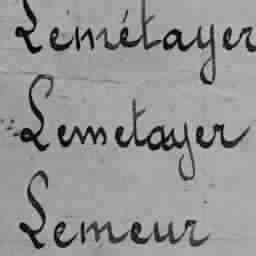 Lemétayer
Lemetayer
Lemeur